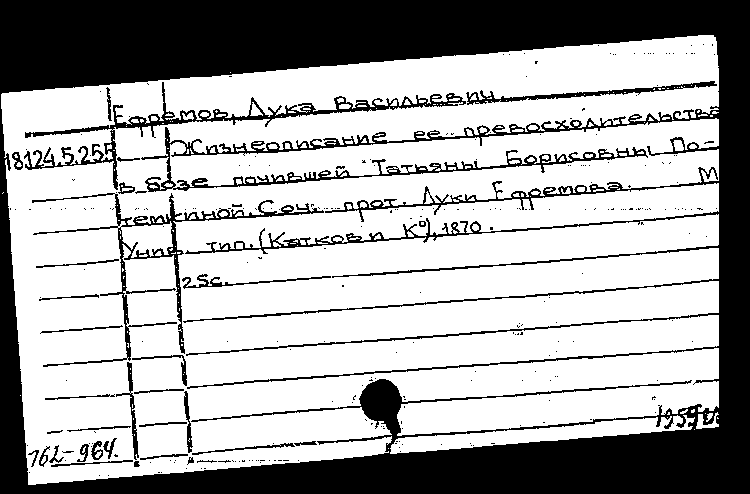 Ефремов, Лука Васильевич.
18124.5.255. Жизнеописание ее превосходительства
в бозе почившей Татьяны Борисовны По-
темкиной. Соч. прот. Луки Ефремова. М
Унив. тип. (Катков и К°), 1870.
25с.
762-964.